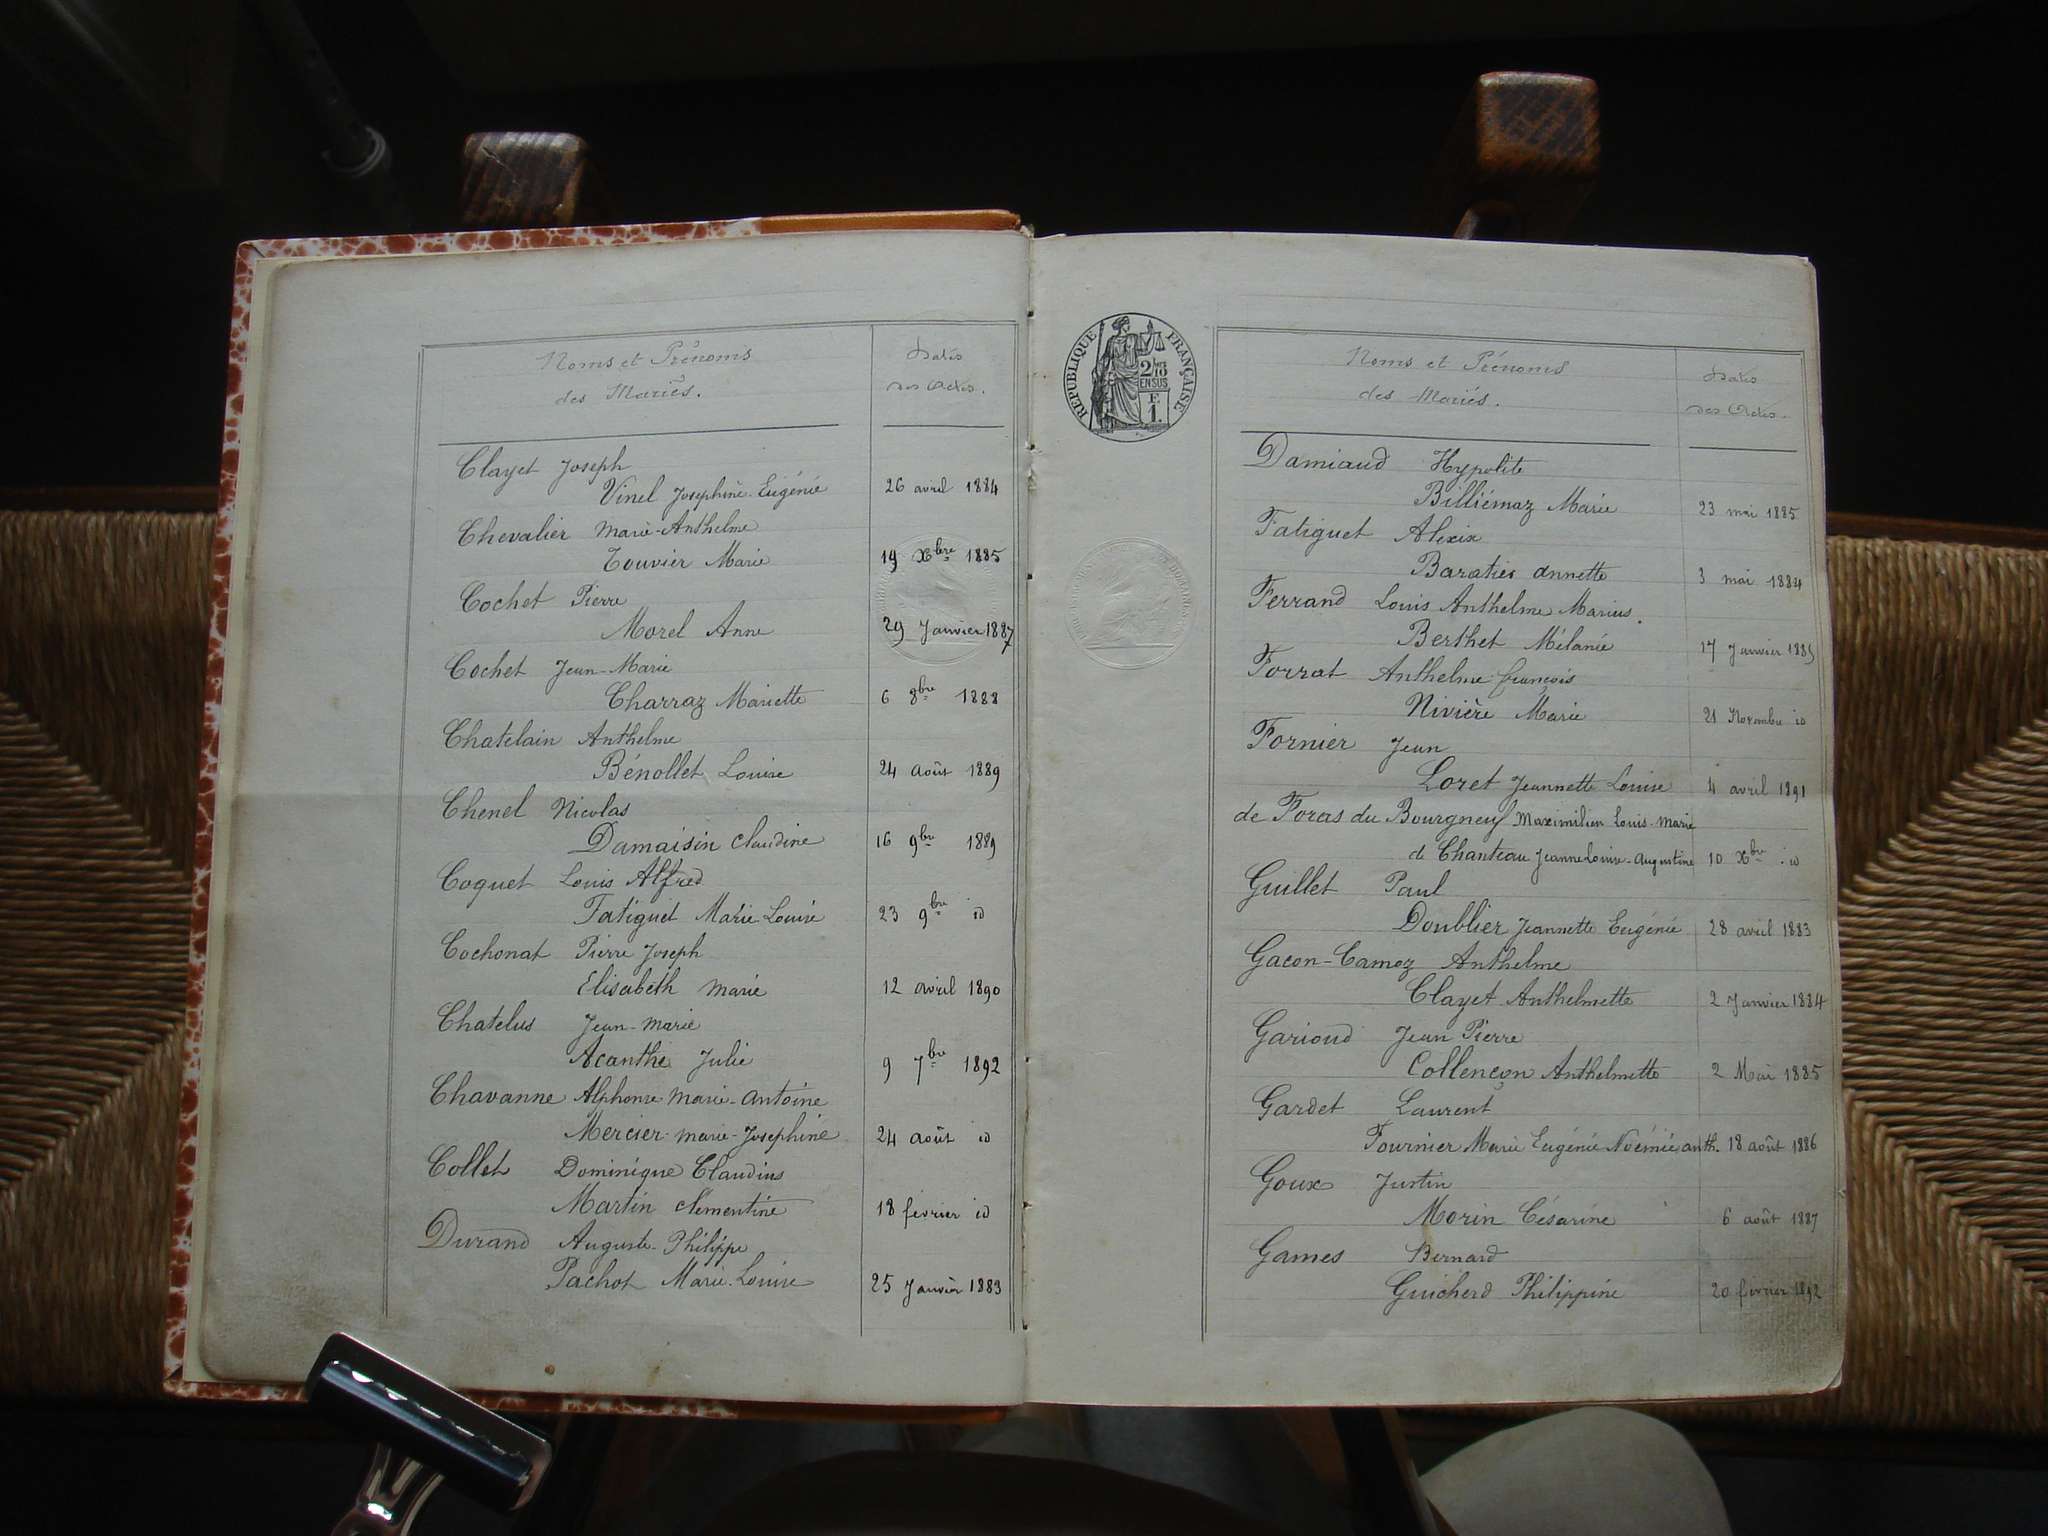 Noms et Prénoms
des Mariés.
Dates
des Actes.
Clayet Joseph
Vinel Josephine Eugénie 26 avril 1884
Chevalier Marie-Anthelme
Touvier Marie 19 Xbre 1885
Cochet Pierre
Morel Anne 29 Janvier 1887
Cochet Jean-Marie
Charraz Mariette 6 8bre 1888
Chatelain Anthelme
Bénollet Louise 24 Août 1889
Chenel Nicolas
Damaisin Claudine 16 9bre 1889
Coquet Louis Alfred
Fatiguet Marie-Louise 23 9bre id
Cochonat Pierre Joseph
Elisabeth Marie 12 avril 1890
Chatelus Jean-Marie
Acanthe Julie 9 7bre 1892
Chavanne Alphonse Marie-Antoine
Mercier Marie-Josephine 24 Août id
Collet Dominique Claudius
Martin Clémentine 18 février id
Durand Auguste-Philippe
Pachot Marie-Louise 25 Janvier 1883
RÉPUBLIQUE FRANÇAISE
2/10
EN SUS
E
1.
Noms et Prénoms
des Mariés.
Dates
des Actes.
Damiaud Hypolite
Billiémaz Marie 23 mai 1885
Fatiguet Alexix
Baratier Annette 3 mai 1884
Ferrand Louis Anthelme Marius.
Berthet Mélanie 17 Janvier 1885
Forrat Anthelme françois
Nivière Marie 21 Novembre id
Fornier Jean
Loret Jeannette Louise 4 avril 1891
de Foras du Bourgneuf Maximilien Louis-Marie
de Chanteau Jeanne Louise-Augustine 10 Xbre id
Guillet Paul
Doublier Jeannette Eugénie 28 avril 1883
Gacon-Camoz Anthelme
Clayet Anthelmette 2 Janvier 1884
Garioud Jean Pierre
Collençon Anthelmette 2 Mai 1885
Gardet Laurent
Fournier Marie Eugénie Noémie anth. 18 août 1886
Goux Justin
Morin Césarine 6 août 1887
Games Bernard
Guicherd Philippine 20 février 1892